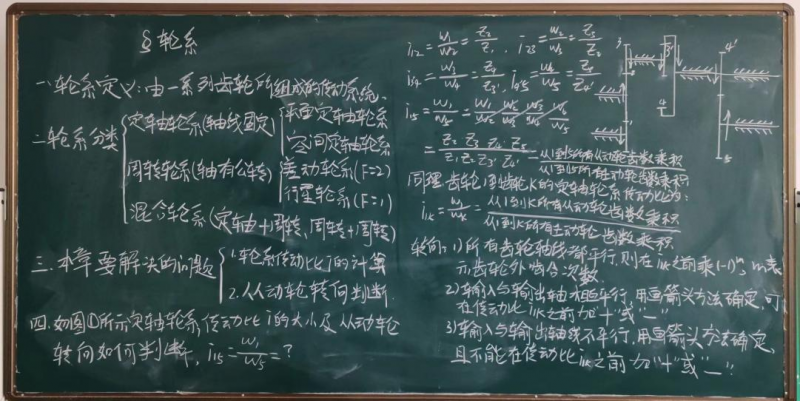 § 轮系
一.轮系定义:由一系列齿轮所组成的传动系统.
二.轮系分类
定轴轮系(轴线固定)
平面定轴轮系
空间定轴轮系
周转轮系(轴有公转)
差动轮系(F=2)
行星轮系(F=1)
混合轮系(定轴+周转,周转+周转)
三.本章要解决的问题
1.轮系传动比i的计算
2.从动轮转向判断.
四.如图①所示定轴轮系,传动比i的大小及从动轮
转向如何判断, i₁₅=W₁/W₅=?
i₁₂=W₁/W₂=Z₂/Z₁, i₂₃=W₂/W₃=Z₃/Z₂
i₃'₄=W₃'/W₄=Z₄/Z₃', i₄'₅=W₄'/W₅=Z₅/Z₄'
i₁₅=W₁/W₅=W₁/W₂ W₂/W₃ W₃'/W₄ W₄'/W₅
=Z₂ Z₃ Z₄ Z₅/Z₁ Z₂ Z₃' Z₄'=从1到5所有从动轮齿数乘积/从1到5所有主动轮齿数乘积
同理 齿轮1到齿轮K的定轴轮系传动比为:
i₁ₖ=W₁/Wₖ=从1到K所有从动轮齿数乘积/从1到K所有主动轮齿数乘积
转向: 1)所有齿轮轴线都平行,则在i₁ₖ之前乘(-1)ᵐ, m表
示齿轮外啮合次数.
2)输入与输出轴相互平行,用画箭头方法确定,可
在传动比i₁ₖ之前加"+"或"-"
3)输入与输出轴线不平行,用画箭头方法确定,
且不能在传动比i₁ₖ之前加"+"或"-".
3 3' 4' 2 4 1 5